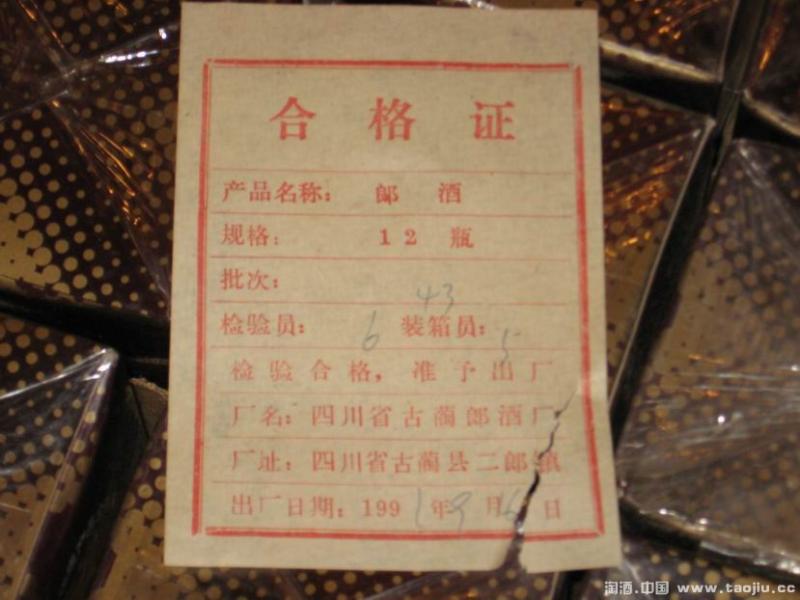 合格证
产品名称: 郎 酒
规格: 12 瓶
批次: 43
检验员: 6 装箱员: 5
检验合格,准予出厂
厂名:四川省古蔺郎酒厂
厂址:四川省古蔺县二郎镇
出厂日期:1991年9月6日
淘酒.中国 www.taojiu.cc